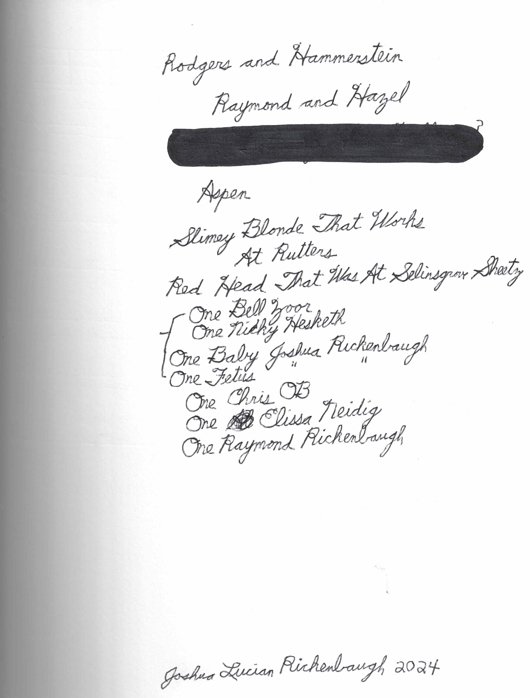 Rodgers and Hammerstein
Raymond and Hazel
?
Aspen
Slimey Blonde That Works
At Rutters
Red Head That Was At Selinsgrove Sheetz
One Bell Zoor
One Nicky Hesketh
One Baby Joshua Rickenbaugh
One Fetus " "
One Chris OB
One Elissa Neidig
One Raymond Rickenbaugh
Joshua Lucian Rickenbaugh 2024